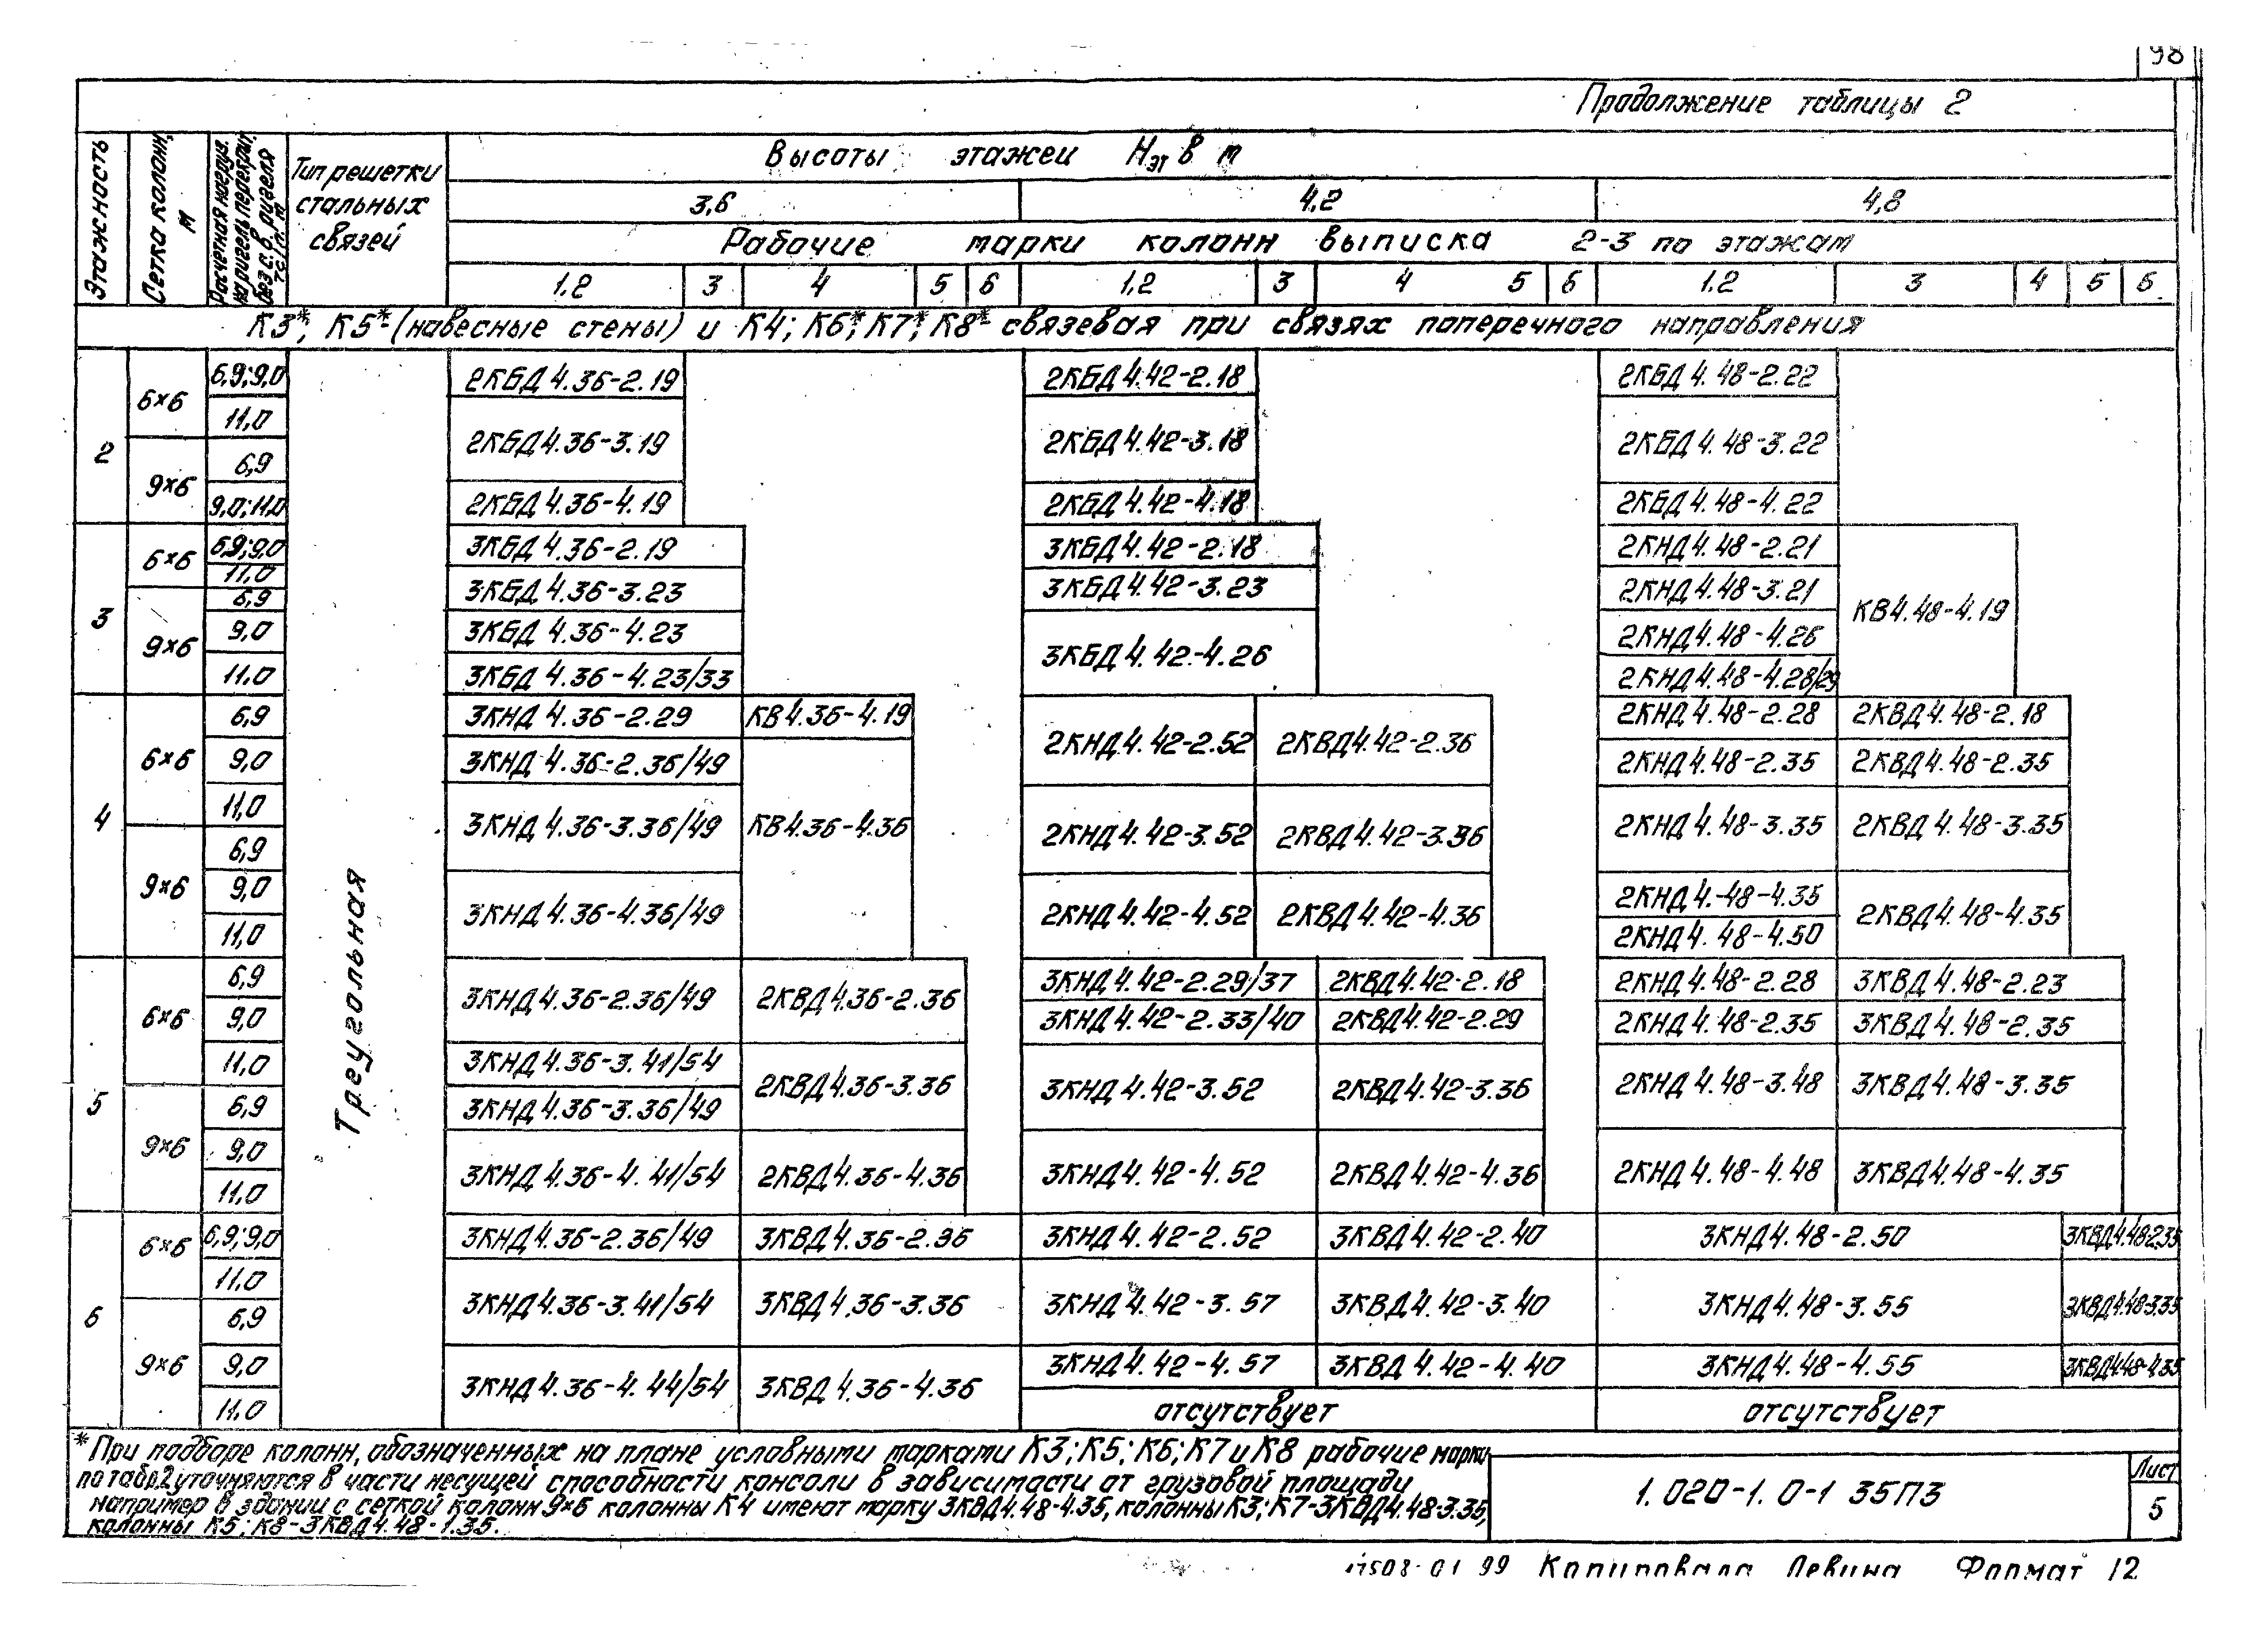 98
Продолжение таблицы 2
Этажность
Сетка колонн, м
Расчетная нагруз. на ригель перекрыт. без с.в. ригеля тс/п.м
Тип решетки
стальных
связей
Высоты этажей Нэт в м
3,6 4,2 4,8
Рабочие марки колонн выписка 2-3 по этажам
1.2 3 4 5 6 1,2 3 4 5 6 1.2 3 4 5 6
К3*; К5*-(навесные стены) и К4; К6*; К7*; К8*- связевая при связях поперечного направления
Треугольная
2 6×6 6,9;9,0 2КБД4.36-2.19 2КБД4.42-2.18 2КБД4.48-2.22
11,0 2КБД4.36-3.19 2КБД4.42-3.18 2КБД4.48-3.22
9×6 6,9
9,0;11,0 2КБД4.36-4.19 2КБД4.42-4.18 2КБД4.48-4.22
3 6×6 6,9;9,0 3КБД4.36-2.19 3КБД4.42-2.18 2КНД4.48-2.21 КВ4.48-4.19
11,0 3КБД4.36-3.23 3КБД4.42-3.23 2КНД4.48-3.21
9×6 6,9
9,0 3КБД4.36-4.23 3КБД4.42-4.26 2КНД4.48-4.26
11,0 3КБД4.36-4.23/33 2КНД4.48-4.28/29
4 6×6 6,9 3КНД4.36-2.29 КВ4.36-4.19 2КНД4.42-2.52 2КВД4.42-2.36 2КНД4.48-2.28 2КВД4.48-2.18
9,0 3КНД4.36-2.36/49 КВ4.36-4.36 2КНД4.48-2.35 2КВД4.48-2.35
11,0 3КНД4.36-3.36/49 2КНД4.42-3.52 2КВД4.42-3.36 2КНД4.48-3.35 2КВД4.48-3.35
9×6 6,9
9,0 3КНД4.36-4.36/49 2КНД4.42-4.52 2КВД4.42-4.36 2КНД4.-48-4.35 2КВД4.48-4.35
11,0 2КНД4.48-4.50
5 6×6 6,9 3КНД4.36-2.36/49 2КВД4.36-2.36 3КНД4.42-2.29/37 2КВД4.42-2.18 2КНД4.48-2.28 3КВД4.48-2.23
9,0 3КНД4.42-2.33/40 2КВД4.42-2.29 2КНД4.48-2.35 3КВД4.48-2.35
11,0 3КНД4.36-3.41/54 2КВД4.36-3.36 3КНД4.42-3.52 2КВД4.42-3.36 2КНД4.48-3.48 3КВД4.48-3.35
9×6 6,9 3КНД4.36-3.36/49
9,0 3КНД4.36-4.41/54 2КВД4.36-4.36 3КНД4.42-4.52 2КВД4.42-4.36 2КНД4.48-4.48 3КВД4.48-4.35
11,0
6 6×6 6,9;9,0 3КНД4.36-2.36/49 3КВД4.36-2.36 3КНД4.42-2.52 3КВД4.42-2.40 3КНД4.48-2.50 3КВД4.48-2.35
11,0 3КНД4.36-3.41/54 3КВД4.36-3.36 3КНД4.42-3.57 3КВД4.42-3.40 3КНД4.48-3.55 3КВД4.48-3.35
9×6 6,9
9,0 3КНД4.36-4.44/54 3КВД4.36-4.36 3КНД4.42-4.57 3КВД4.42-4.40 3КНД4.48-4.55 3КВД4.48-4.35
11,0 отсутствует отсутствует
*При подборе колонн, обозначенных на плане условными марками К3; К5; К6; К7 и К8 рабочие марки
по табл.2 уточняются в части несущей способности консоли в зависимости от грузовой площади
например в здании с сеткой колонн 9×6 колонны К4 имеют марку 3КВД4.48-4.35, колонны К3; К7-3КВД4.48-3.35,
колонны К5; К8-3КВД4.48-1.35.
1.020-1.0-1 35ПЗ
Лист
5
17508-01 99 Копировала Левина Формат 12